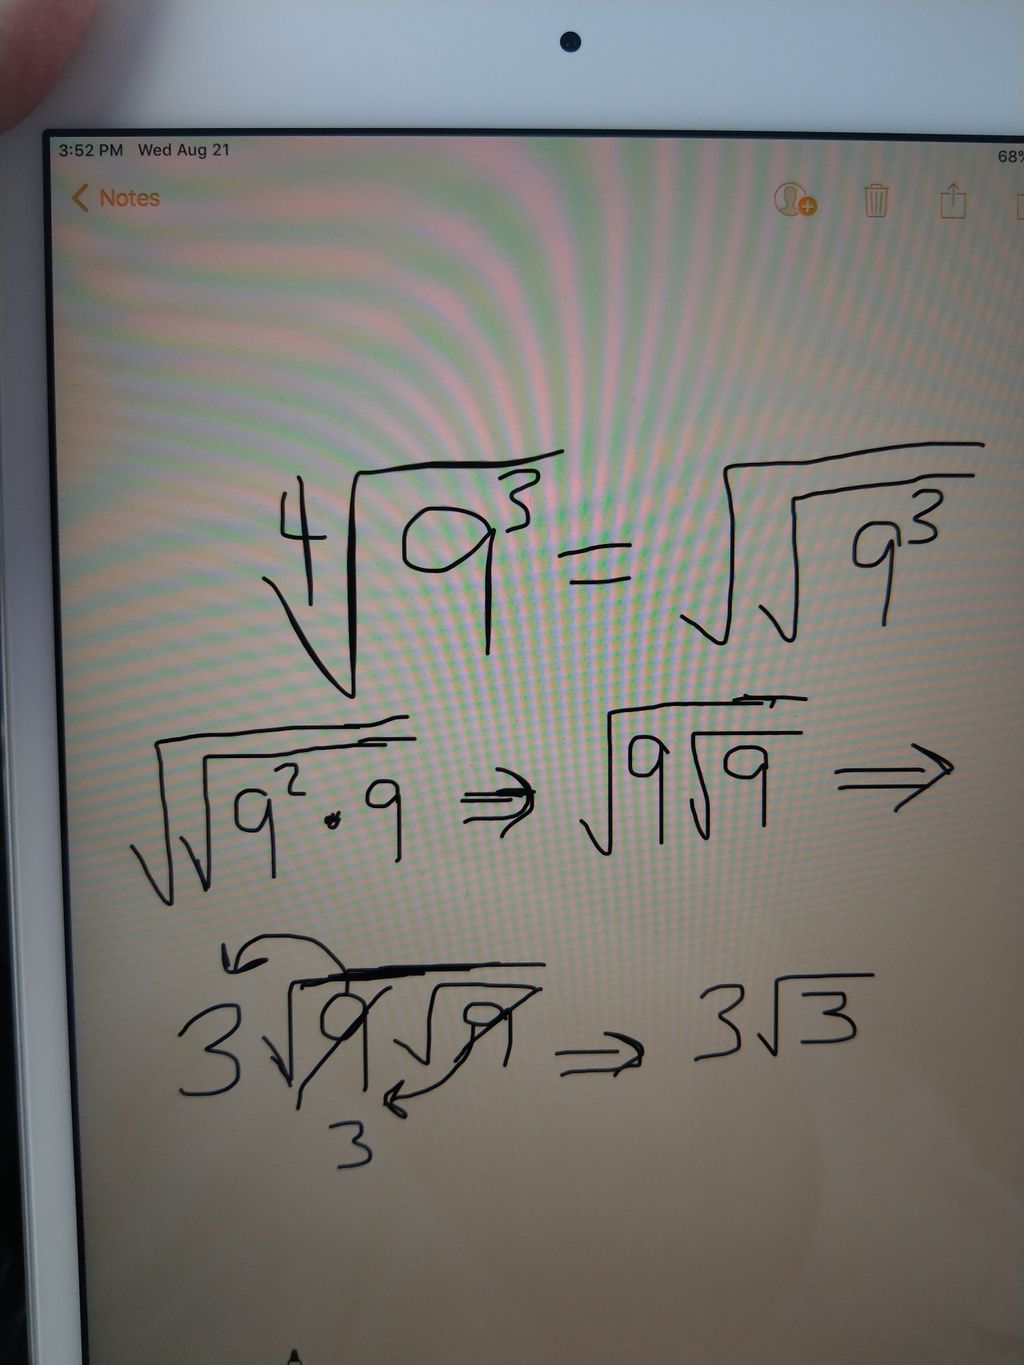 3:52 PM Wed Aug 21 68%
Notes
∜9³ = √√9³
√√9² · 9 ⇒ √9√9 ⇒
3√9√9 ⇒ 3√3
3